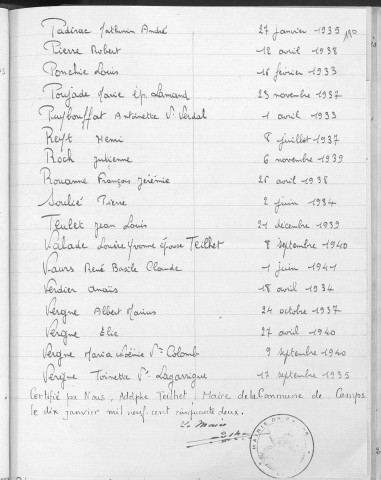 Padirac Mathurin André 27 janvier 1935
Pierre Robert 12 avril 1938
Ponchie Louis 18 février 1933
Poujade Marie ép. Lamand 23 novembre 1937
Puybouffat Antoinette Vᵉ Verdal 1 avril 1933
Reyt Henri 8 juillet 1937
Rock Julienne 6 novembre 1939
Rouanne François Jérémie 26 avril 1938
Soulié Pierre 2 juin 1934
Teulet Jean Louis 21 décembre 1939
Valade Louise Yvonne épouse Teilhet 8 septembre 1940
Vaurs René Basile Claude 1 juin 1941
Verdier Anaïs 18 avril 1934
Vergne Albert Marius 24 octobre 1937
Vergne Elie 27 avril 1940
Vergne Maria Noémie Vᵉ Colomb 9 septembre 1940
Vergne Toinette Vᵉ Lagarrigue 17 septembre 1935
Certifié par Nous, Adolphe Teilhet, Maire de la Commune de Camps
le dix janvier mil neuf cent cinquante deux.
Le Maire